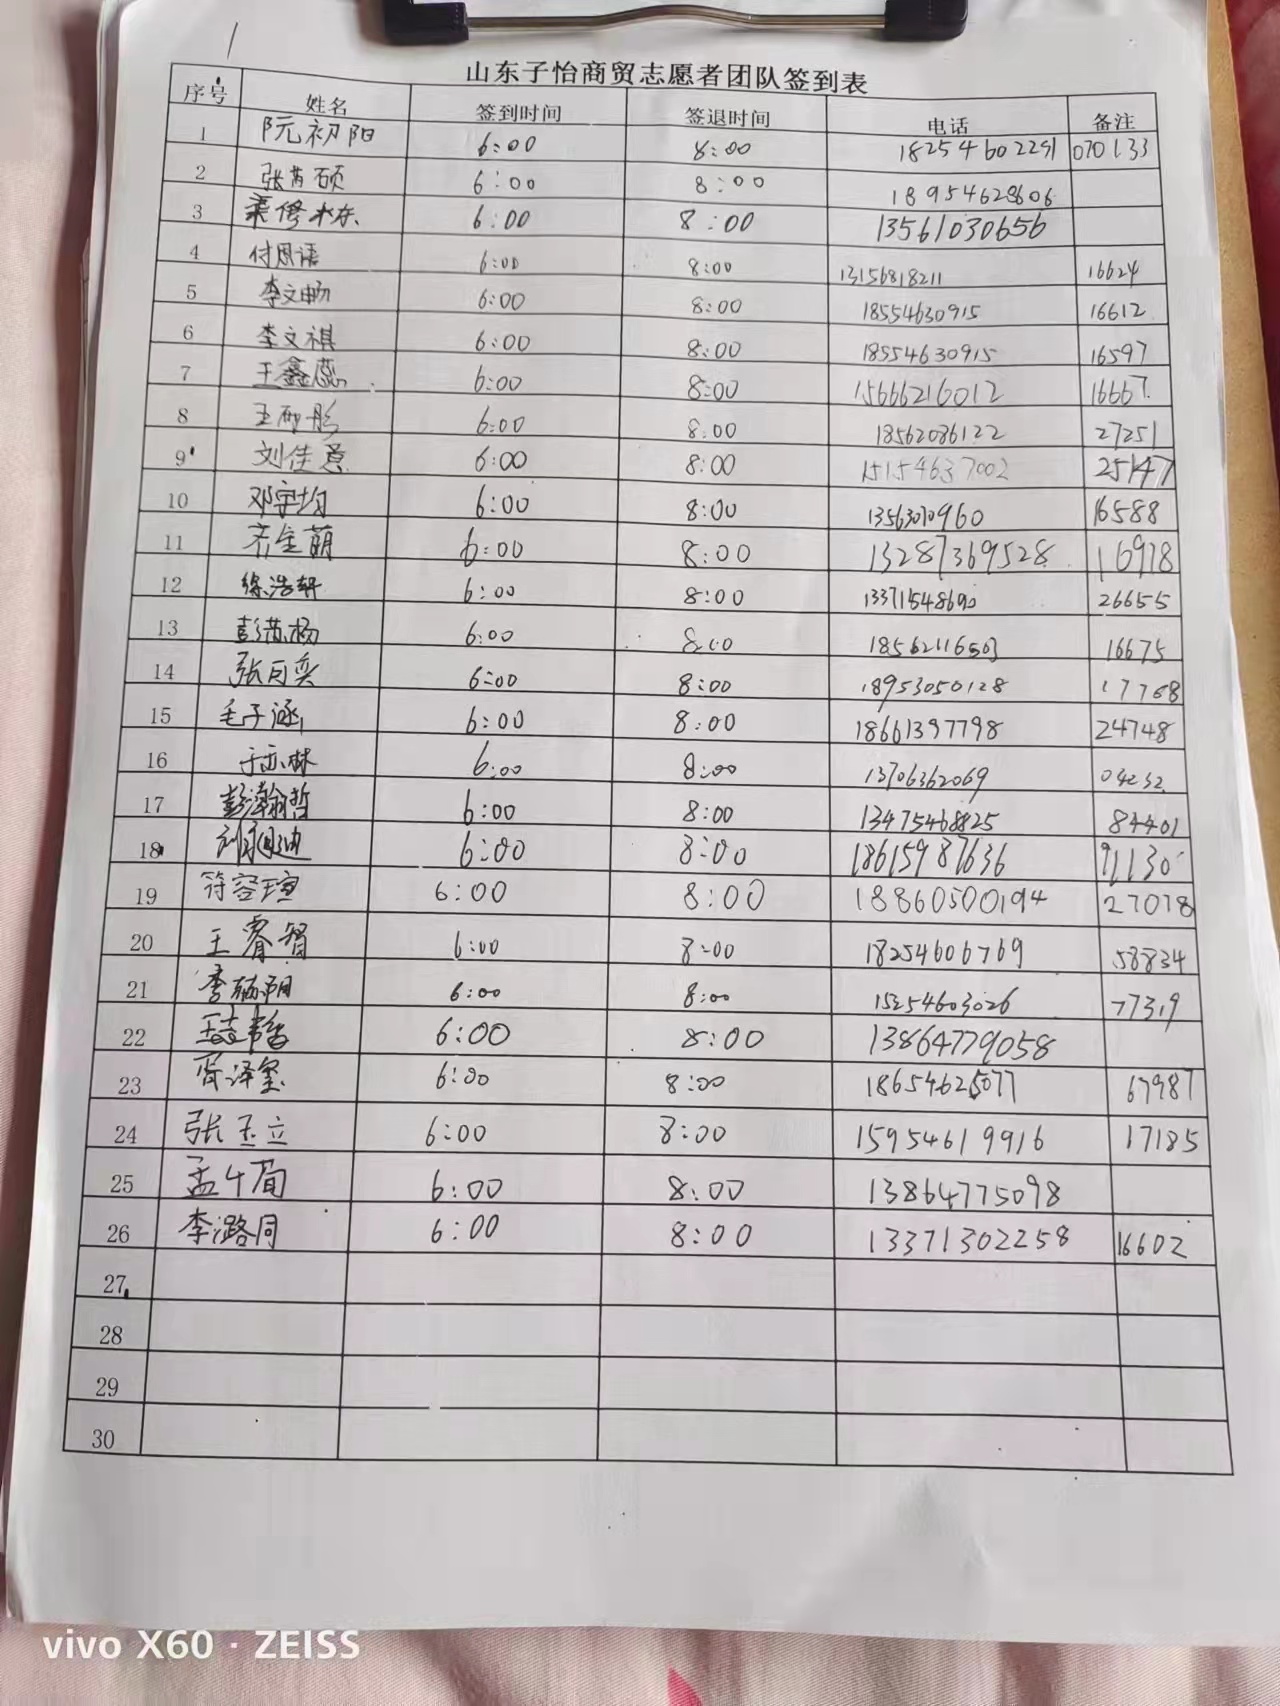 山东子怡商贸志愿者团队签到表
序号 姓名 签到时间 签退时间 电话 备注
1 阮初阳 6:00 8:00 18254602291 070133
2 张芮硕 6:00 8:00 18954628606
3 6:00 8:00 13561030656
4 付恩语 6:00 8:00 13156818211 16624
5 李文畅 6:00 8:00 18554630915 16612
6 李文祺 6:00 8:00 18554630915 16597
7 王鑫蕊 6:00 8:00 15666216012 16667
8 6:00 8:00 18562086122 27251
9 刘佳意 6:00 8:00 15154637002 25147
10 邓宇均 6:00 8:00 13563010960 16588
11 齐金萌 6:00 8:00 13287369528 16978
12 徐浩轩 6:00 8:00 13371548690 26655
13 6:00 8:00 18562116503 16675
14 张月奕 6:00 8:00 18953050128 17768
15 毛子涵 6:00 8:00 18661397798 24748
16 于亦林 6:00 8:00 13706362069
17 彭瀚哲 6:00 8:00 13475468825 84401
18 6:00 8:00 18615987636 91130
19 符容瑄 6:00 8:00 18860500194 27078
20 王睿智 6:00 8:00 18254606769 58834
21 6:00 8:00 15254603026 77319
22 6:00 8:00 13864779058
23 6:00 8:00 18654625077 67987
24 张玉立 6:00 8:00 15954619916 17185
25 6:00 8:00 13864775098
26 李潞同 6:00 8:00 13371302258 16602
27
28
29
30
vivo X60 · ZEISS